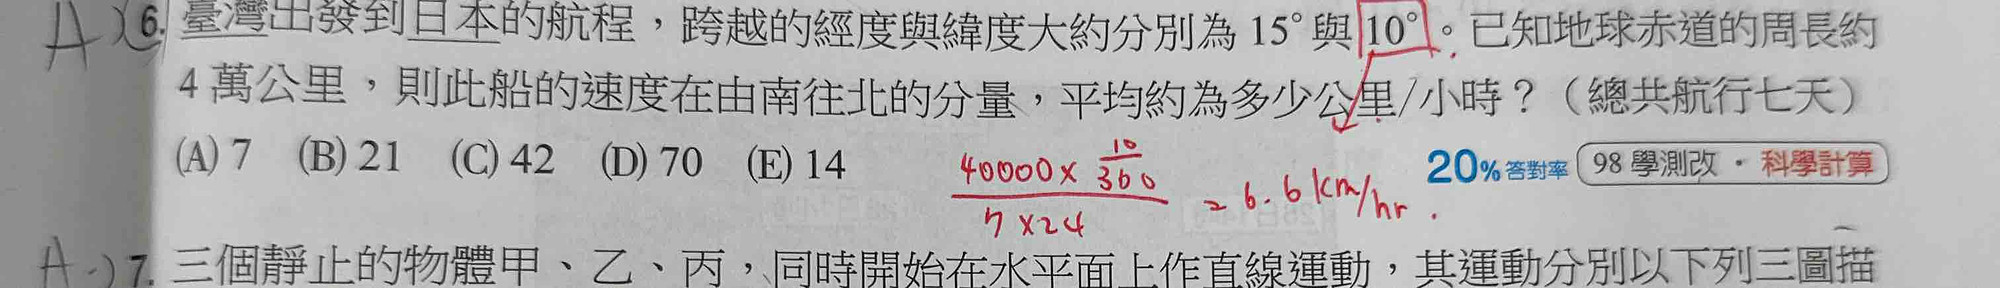 A 6. 臺灣出發到日本的航程，跨越的經度與緯度大約分別為 15°與 10°。已知地球赤道的周長約
4 萬公里，則此船的速度在由南往北的分量，平均約為多少公里/小時？（總共航行七天）
(A) 7 (B) 21 (C) 42 (D) 70 (E) 14
40000 × 10/360
7 × 24
= 6.6 km/hr.
20%答對率 98 學測改・科學計算
A 7. 三個靜止的物體甲、乙、丙，同時開始在水平面上作直線運動，其運動分別以下列三圖描